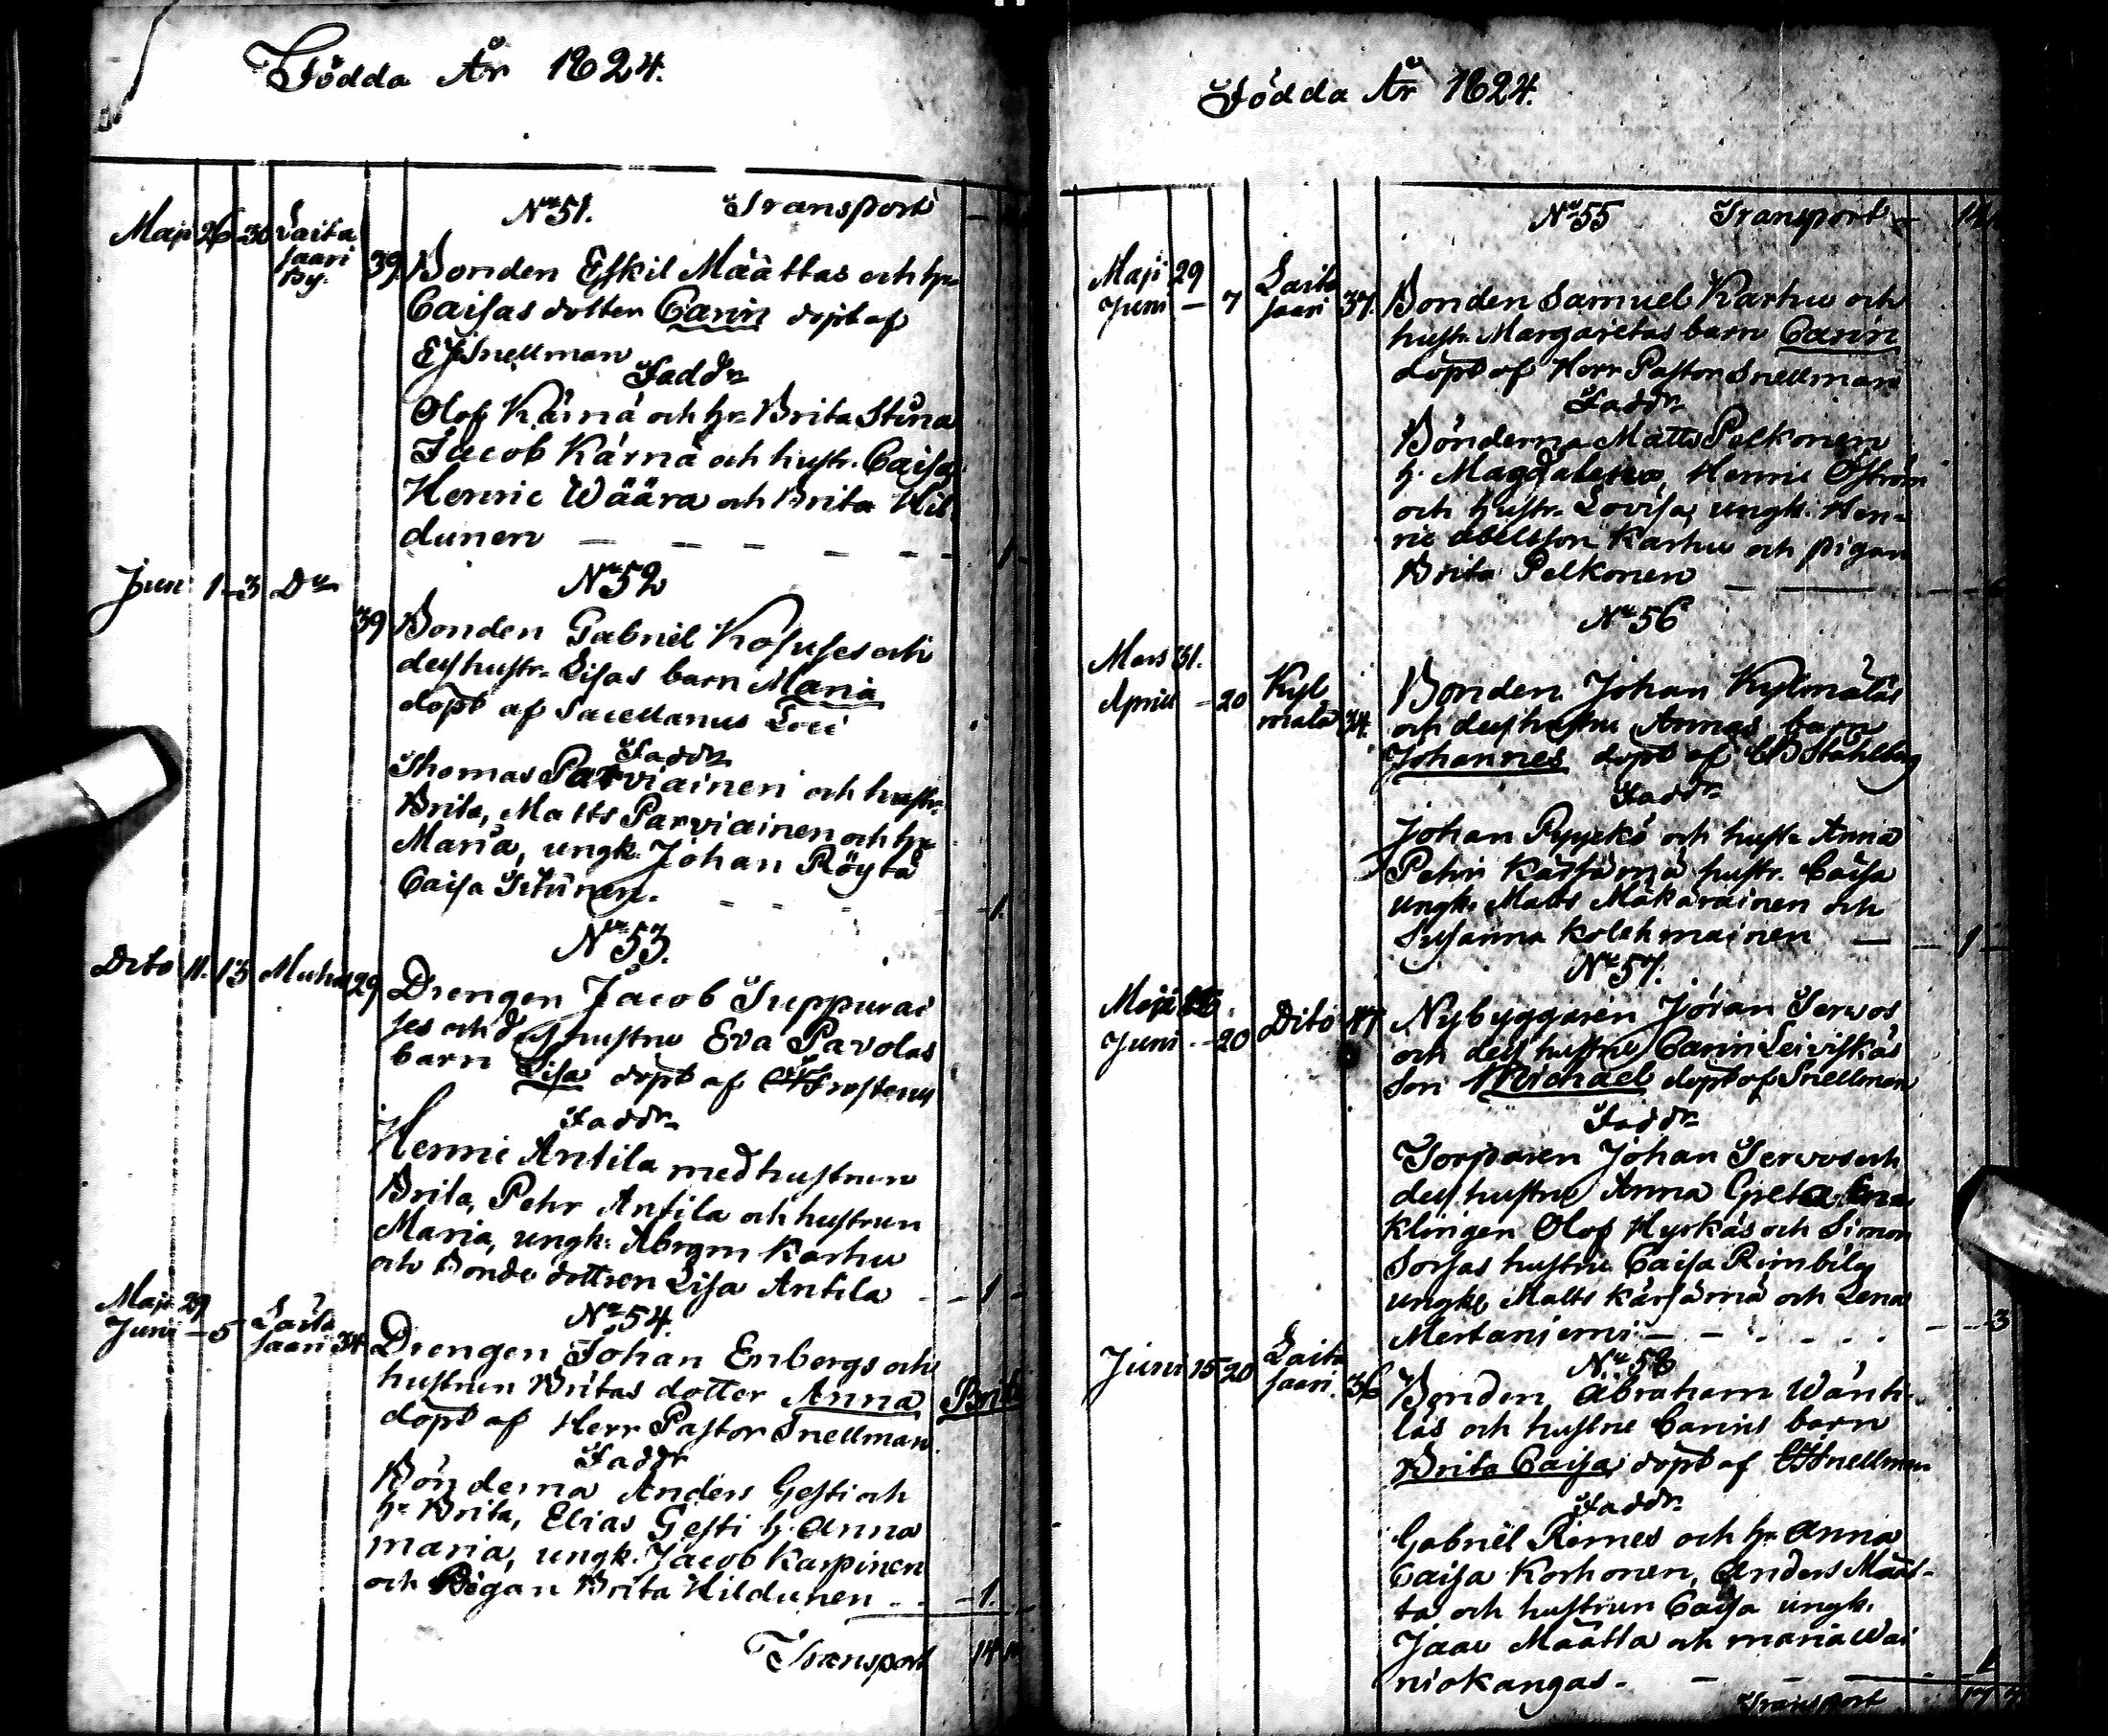 Födda År 1824.
No 51. Transport
Maji 26 30 Laita
saari
By.
39. Bonden Eskil Määttas och hr
Caisas dotter Carin döpt af
EJSnellman
Faddr
Olof Kärnä och hr Brita Stina
Jacob Kärnä och hustr. Caisa
Henric Wäära och Brita Hil
dunen 1
No 52
Jun 1 3 Do
39 Bonden Gabriel Kosuses och
dess hustr. Lisas barn Maria
döpt af Sacellanus Loci
Faddr
Thomas Parviainen och hustr.
Brita, Matts Parviainen och hr
Maria, ungk. Johan Röytä
Caisa 1.
No 53.
Dito 11. 13 Muhos 29 Drengen Jacob Suppurai
ses och dess hustru Eva Pavolas
barn Lisa döpt af Frosterus
Faddr
Henric Antila med hustrun
Brita, Pehr Antila och hustrun
Maria, ungk. Abram Karhu
och Bonde dottren Lisa Antila 1
No 54.
Maji 29
Juni 5 Laita
saari 34 Drengen Johan Enbergs och
hustrun Britas dotter Anna Brita
döpt af Herr Pastor Snellman.
Faddr
Bönderna Anders Gesti och
hr Brita, Elias Gesti h. Anna
maria, ungk. Jacob Karpinen
och Pigan Brita Hildunen 1.
Transport 14
Födda År 1824.
No 55 Transport 14
Maji 29
Juni 7 Laita
saari 37. Bonden Samuel Karhu och
hustr. Margaretas barn Carin
döpt af Herr Pastor Snellman
Faddr
Bönderna Matts Pelkonen
h. Magdalena, Henric Öström
och hustr. Lovisa, ungk. Hen-
ric Abelsson Karhu och pigan
Brita Pelkonen
No 56
Mars 31.
April 20 Kyl
mälä 34. Bonden Johan Kylmäläs
och dess hustru Annas barn
Johannes döpt af CB Ståhlberg
Faddr
Johan Pyyckö och hustr Anna
Pehr Kärsämä hustr. Caisa
ungk. Matts Mākäräinen och
Susanna Kolehmainen 1
No 57.
Maji
Juni 20 Dito Nybyggaren Jöran Servos
och dess hustru Carin Leiviskäs
son Michael döpt af Snellman
Faddr
Torparen Johan Servos och
dess hustru Anna Greta Enka
klingen Olof Hyrkäs och Simon
Sorsas hustru Caisa Rimbilq
ungk. Matts Kärsämä och Lena
Mertaniemi 3
No 58
Juni 15 20 Laita
saari. 36 Bonden Abraham Wänti-
läs och hustru Carins barn
Brita Caisa, döpt af Snellman
Faddr
Gabriel Remes och hr Anna
Caisa Korhonen, Anders Määt-
ta och hustrun Caisa ungk.
Isaac Määtta och maria Wai
niokangas. 1
Transport 17